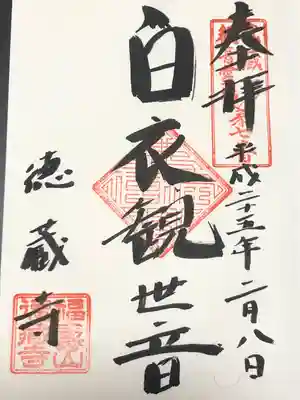 奉拝
平成二十五年二月八日
白衣観世音
徳蔵寺